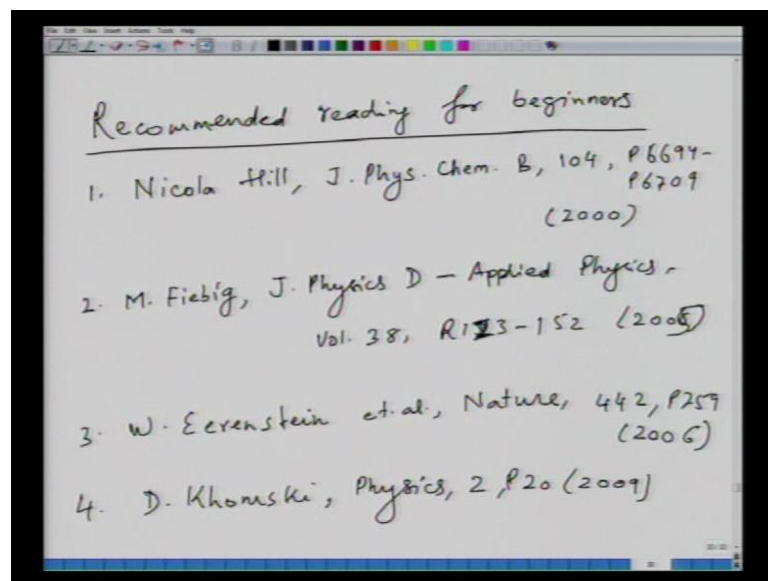 File Edit View Insert Actions Tools Help
Recommended reading for beginners
1. Nicola Hill, J. Phys. Chem. B, 104, P6694-
P6709
(2000)
2. M. Fiebig, J. Physics D - Applied Physics,
Vol. 38, R123-152 (2005)
3. W. Eerenstein et. al., Nature, 442, P759
(2006)
4. D. Khomski, Physics, 2, P20 (2009)